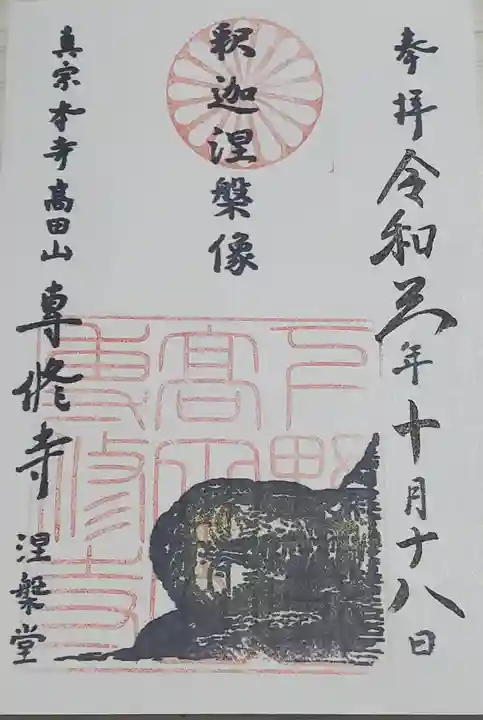 奉拝 令和三年十月十八日
釈迦涅槃像
真宗本寺高田山 専修寺 涅槃堂
下野
高田山
専修寺